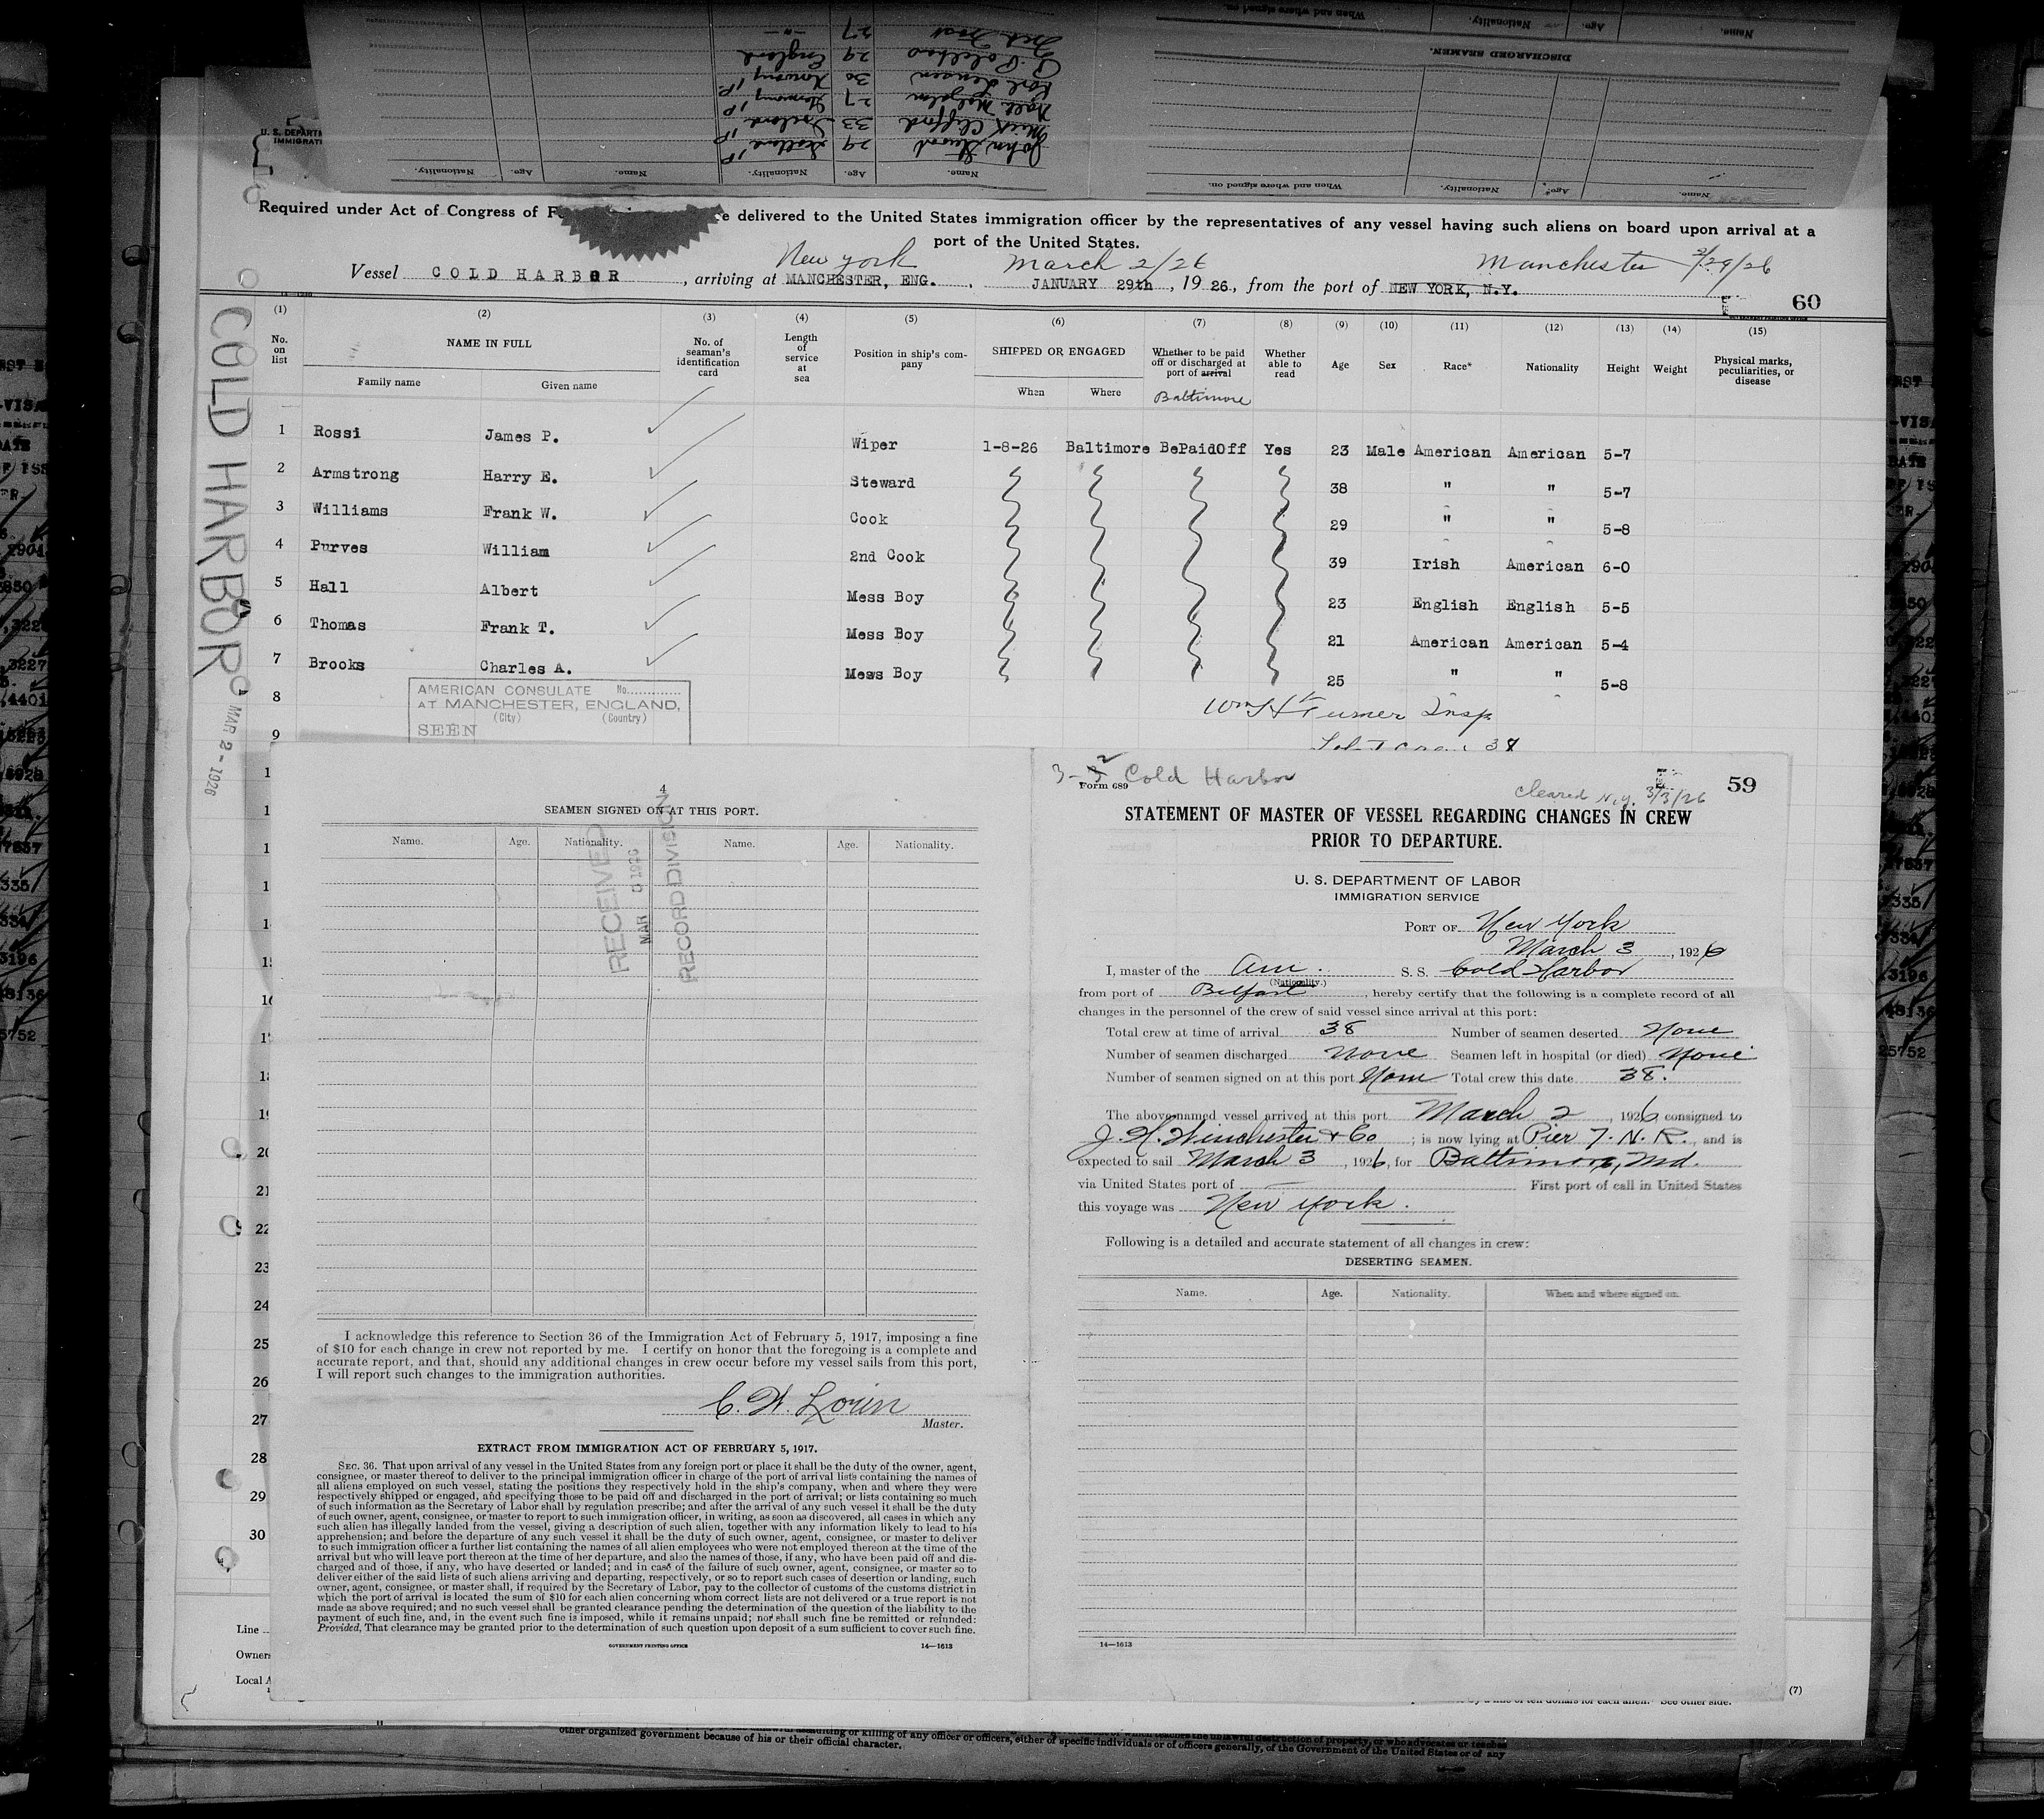 Name. Age. Nationality. Name. Age. Nationality.
John 29 Scotland
Mick Clifford 33 Ireland
27
Karl Jensen 30 Norway
29 England
27
DISCHARGED SEAMEN.
Name. Age. Nationality. When and where signed on.
Name. Age. Nationality. When and where signed on.
U. S. DEPARTM
IMMIGRATI
Required under Act of Congress of F e delivered to the United States immigration officer by the representatives of any vessel having such aliens on board upon arrival at a
port of the United States.
New York March 2/26 Manchester 29/26
Vessel COLD HARBOR, arriving at MANCHESTER, ENG., JANUARY 29th, 1926, from the port of NEW YORK, N.Y.
60
COLD HARBOR
MAR 2 - 1926
(1) (2) (3) (4) (5) (6) (7) (8) (9) (10) (11) (12) (13) (14) (15)
No. on list NAME IN FULL No. of seaman's identification card Length of service at sea Position in ship's company SHIPPED OR ENGAGED Whether to be paid off or discharged at port of arrival Whether able to read Age Sex Race* Nationality Height Weight Physical marks, peculiarities, or disease
Family name Given name When Where Baltimore
1 Rossi James P. Wiper 1-8-26 Baltimore BePaidOff Yes 23 Male American American 5-7
2 Armstrong Harry E. Steward 38 " " 5-7
3 Williams Frank W. Cook 29 " " 5-8
4 Purves William 2nd Cook 39 Irish American 6-0
5 Hall Albert Mess Boy 23 English English 5-5
6 Thomas Frank T. Mess Boy 21 American American 5-4
7 Brooks Charles A. Mess Boy 25 " " 5-8
8
9
AMERICAN CONSULATE No.
AT MANCHESTER, ENGLAND,
(City) (Country)
SEEN
Wm H Turner Insp
38
4
SEAMEN SIGNED ON AT THIS PORT.
Name. Age. Nationality. Name. Age. Nationality.
RECEIVED
MAR 3 1926
RECORD DIVISION
20
21
22
23
24
25
26
27
28
29
30
I acknowledge this reference to Section 36 of the Immigration Act of February 5, 1917, imposing a fine
of $10 for each change in crew not reported by me. I certify on honor that the foregoing is a complete and
accurate report, and that, should any additional changes in crew occur before my vessel sails from this port,
I will report such changes to the immigration authorities.
Master.
EXTRACT FROM IMMIGRATION ACT OF FEBRUARY 5, 1917.
SEC. 36. That upon arrival of any vessel in the United States from any foreign port or place it shall be the duty of the owner, agent,
consignee, or master thereof to deliver to the principal immigration officer in charge of the port of arrival lists containing the names of
all aliens employed on such vessel, stating the positions they respectively hold in the ship's company, when and where they were
respectively shipped or engaged, and specifying those to be paid off and discharged in the port of arrival; or lists containing so much
of such information as the Secretary of Labor shall by regulation prescribe; and after the arrival of any such vessel it shall be the duty
of such owner, agent, consignee, or master to report to such immigration officer, in writing, as soon as discovered, all cases in which any
such alien has illegally landed from the vessel, giving a description of such alien, together with any information likely to lead to his
apprehension; and before the departure of any such vessel it shall be the duty of such owner, agent, consignee, or master to deliver
to such immigration officer a further list containing the names of all alien employees who were not employed thereon at the time of the
arrival but who will leave port thereon at the time of her departure, and also the names of those, if any, who have been paid off and dis-
charged and of those, if any, who have deserted or landed; and in case of the failure of such owner, agent, consignee, or master so to
deliver either of the said lists of such aliens arriving and departing, respectively, or so to report such cases of desertion or landing, such
owner, agent, consignee, or master shall, if required by the Secretary of Labor, pay to the collector of customs of the customs district in
which the port of arrival is located the sum of $10 for each alien concerning whom correct lists are not delivered or a true report is not
made as above required; and no such vessel shall be granted clearance pending the determination of the question of the liability to the
payment of such fine, and, in the event such fine is imposed, while it remains unpaid; nor shall such fine be remitted or refunded:
Provided, That clearance may be granted prior to the determination of such question upon deposit of a sum sufficient to cover such fine.
GOVERNMENT PRINTING OFFICE 14—1613
3-2 Cold Harbor
Form 689
cleared N.Y. 3/3/26
59
STATEMENT OF MASTER OF VESSEL REGARDING CHANGES IN CREW
PRIOR TO DEPARTURE.
U. S. DEPARTMENT OF LABOR
IMMIGRATION SERVICE
PORT OF New York
March 3, 1926
I, master of the Am. S. S. Cold Harbor
(Nationality.)
from port of Belfast, hereby certify that the following is a complete record of all
changes in the personnel of the crew of said vessel since arrival at this port:
Total crew at time of arrival 38 Number of seamen deserted None
Number of seamen discharged None Seamen left in hospital (or died) None
Number of seamen signed on at this port None Total crew this date 38.
The above-named vessel arrived at this port March 2, 1926 consigned to
J. H. Winchester & Co; is now lying at Pier 7. N. R., and is
expected to sail March 3, 1926, for Baltimore, Md.
via United States port of — First port of call in United States
this voyage was New York.
Following is a detailed and accurate statement of all changes in crew:
DESERTING SEAMEN.
Name. Age. Nationality. When and where signed on.
14—1613
Line
Owners
Local A
by a fine of ten dollars for each alien. See other side.
(7)
other organized government because of his or their official character.
either of specific individuals or of officers generally, of the Government of the United States or of any